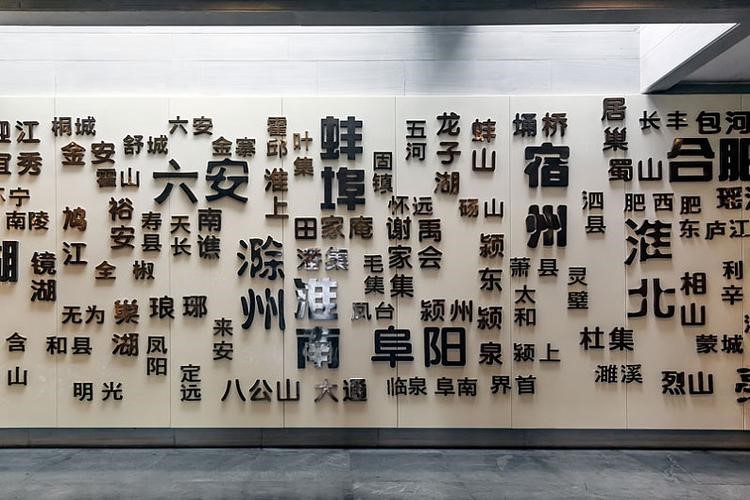 迎江
宜秀
桐城
金安
霍山
舒城
六安
金寨
六安
霍邱
淮上
叶集
蚌埠
固镇
五河
龙子湖
蚌山
埇桥
宿州
居巢
蜀山
长丰
包河
合肥
南陵
鸠江
裕安
寿县
天长
南谯
滁州
田家庵
潘集
怀远
谢家集
禹会
砀山
颍东
泗县
肥西
肥东
瑶
庐江
淮北
湖
镜湖
金
椒
毛集
萧县
太和
灵璧
相山
利辛
无为
巢湖
琅琊
来安
淮南
凤台
颍州
颍泉
含山
和县
凤阳
阜阳
颍上
杜集
濉溪
蒙城
明光
定远
八公山
大通
临泉
阜南
界首
烈山